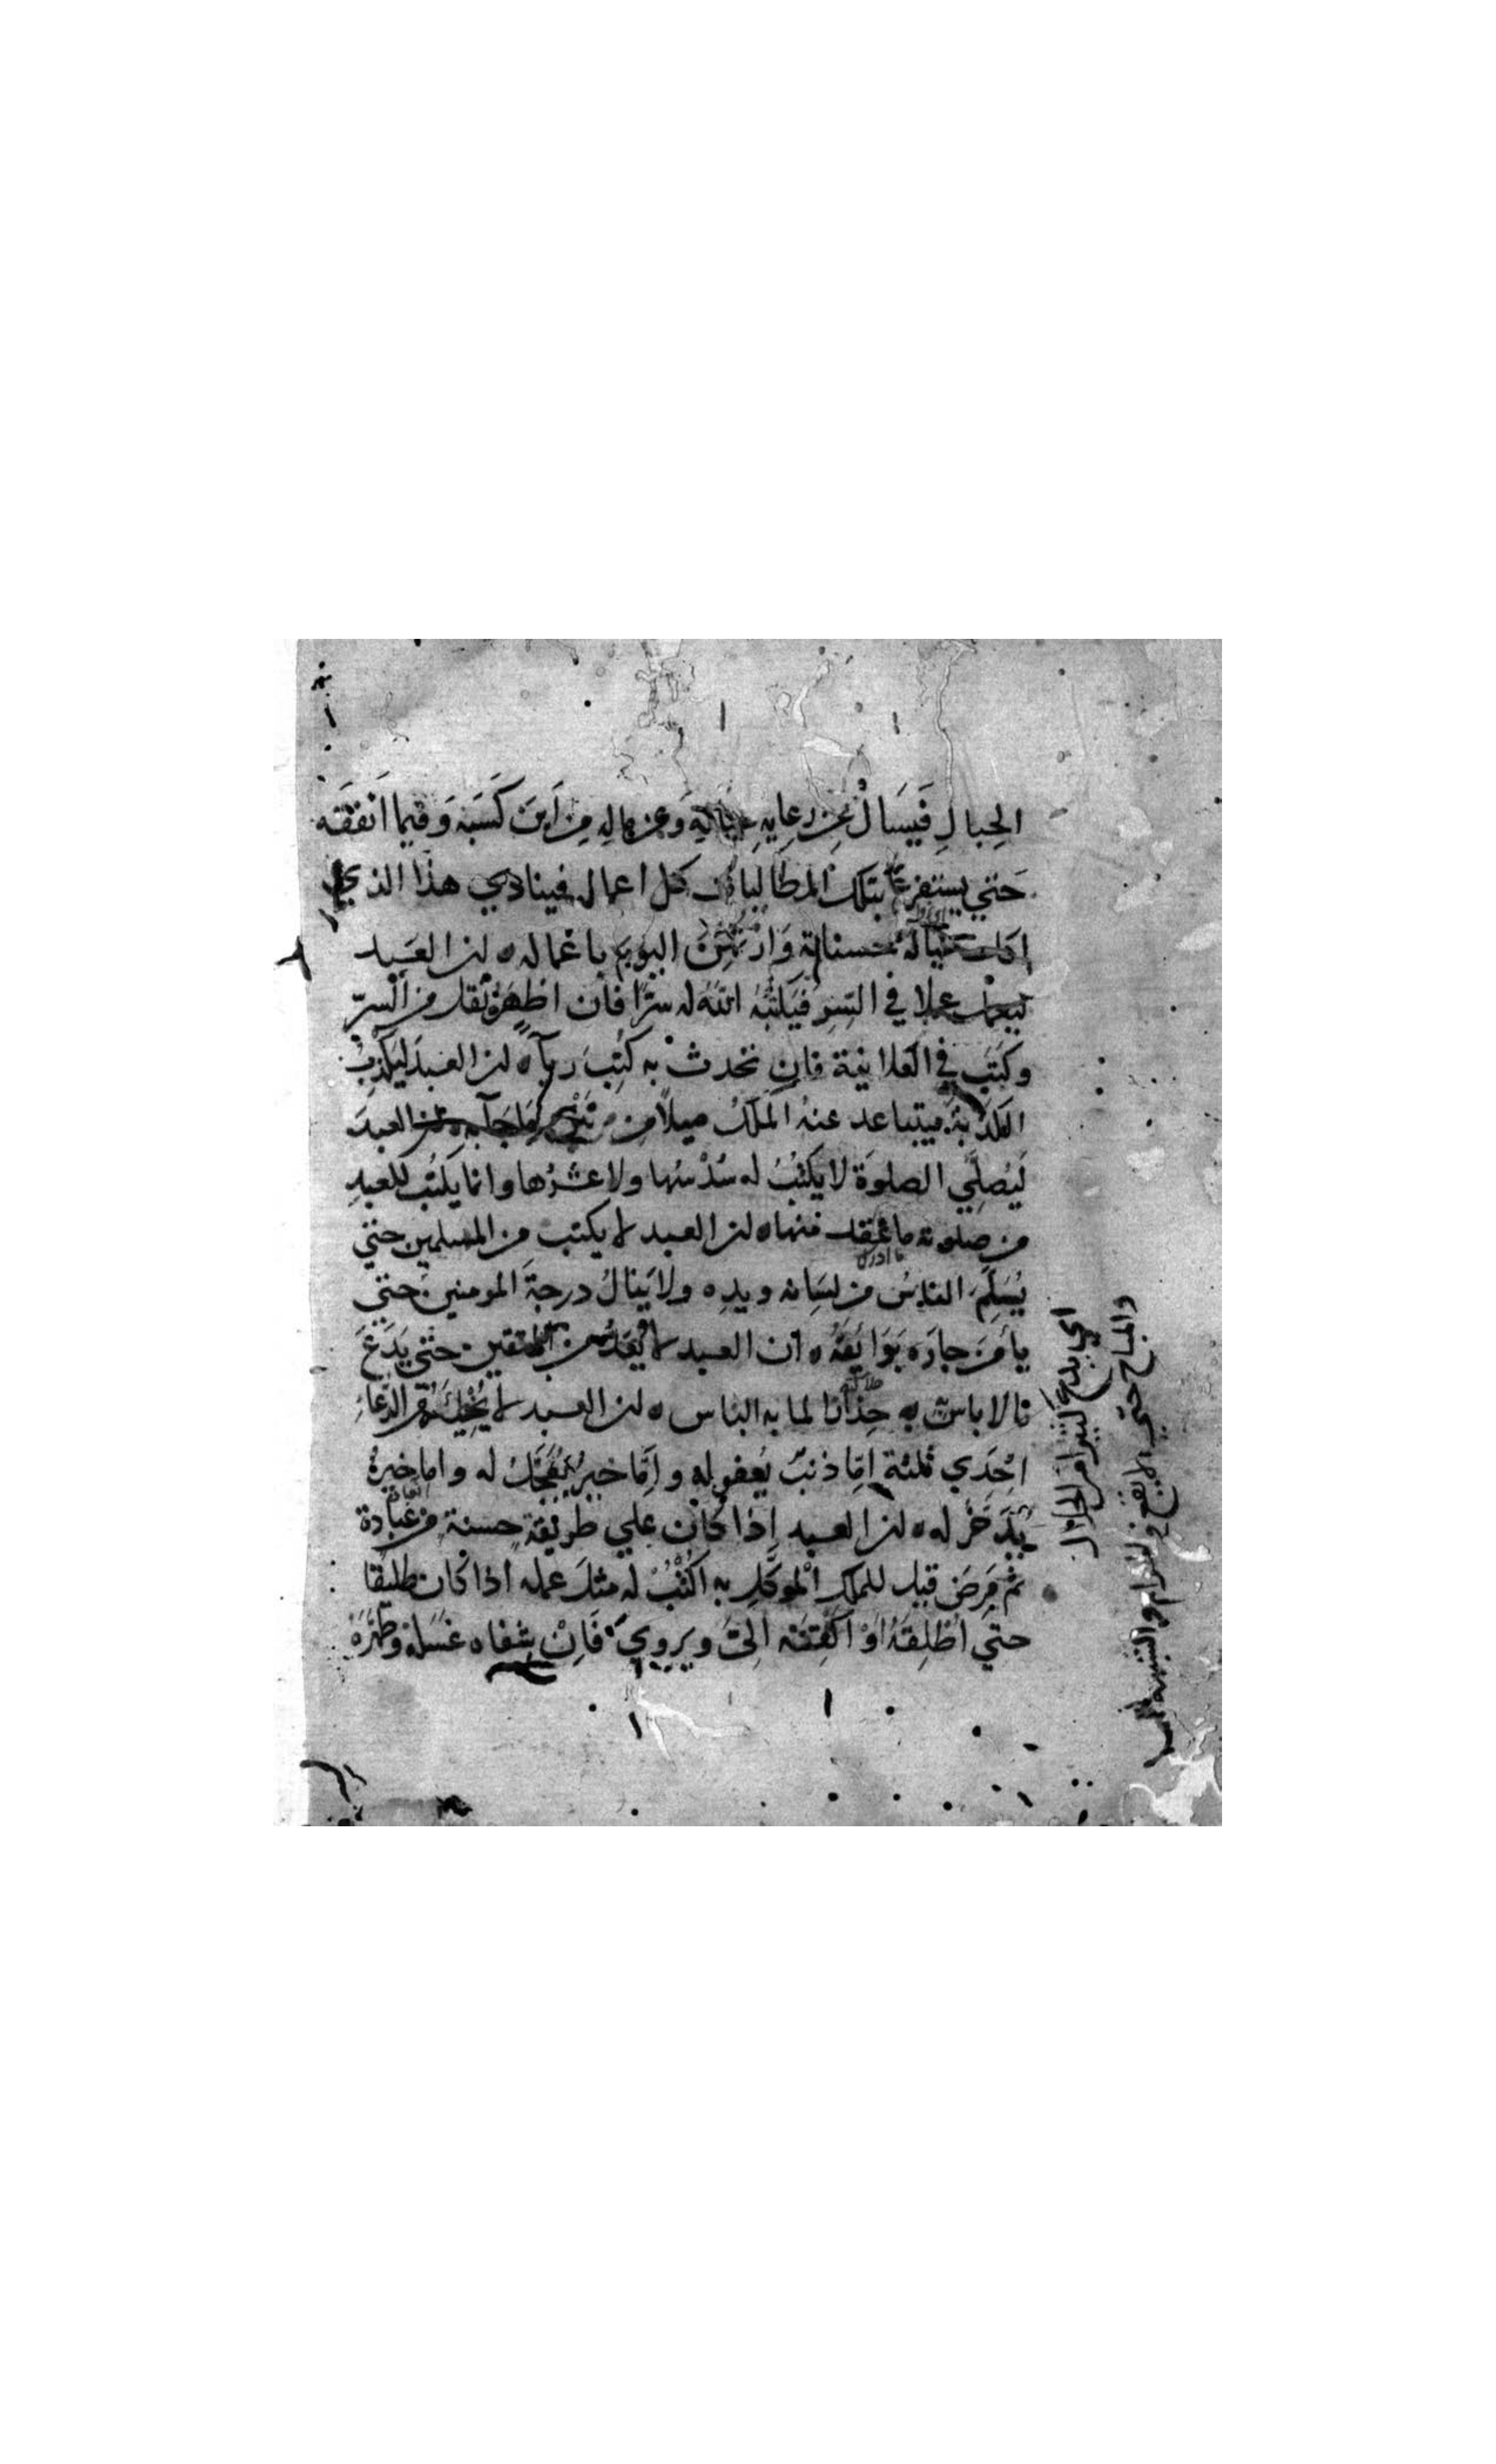 الجِبالِ فَيُسَالُ عن رعايهِ عياله وَعن ماله من اَينَ كَسَبَه وَفيما اَنفقَه
حَتي يستفرغ بتلك المطالبات كل اعماله فينادي هذا الذي
اكلت عياله حسناته وَارْتُهِنَ اليوم باعماله ه ان العبد
ليعمل عملا في السِرِ فيَكتبُهُ اللهُ له سرًّا فان اظهَرهُ نُقل من السرّ
وكتبَ في العَلانية فان تحدث به كُتِبَ رياً ه ان العبدَ ليَكْذِبُ
الكذبة فيتباعد عنهُ المَلَكُ ميلاً من نتن ما جآ به ه ان العبدَ
لَيُصلِّي الصلوَة لا يكتُبُ له سُدْسُها ولا عشرُها وانما يكتُب للعبدِ
من صلوته ما عقل منها ه ان العبد لا يكتب من المسلمين حتي
ما ادرك
يُسَلِمَ الناسُ من لِسَانه ويدِه ولا يَنالُ درجةَ المومنين حتي
يأمَنَ جارَه بَوَائِقَهُ ه ان العبد لا يُعَدُّ من المتقين حتي يَدَعَ
ما لا باس به حِذَارًا لما به الباس ه ان العبد لا يُخْطِئُهُ من الدعاءِ
اِحْدَي ثلثة اِمّا ذنبٌ يُغفر له واِمّا خيرٌ يُعَجَّلُ له واما خيرٌ
يُدَّخَر له ه ان العبد اِذا كان علي طريقةٍ حسنةٍ من عبادة
ثم مَرِضَ قيل للملك المُوكَّلِ به اكْتُبْ له مثلَ عمله اذا كان طليقًا
حتي اُطْلِقَهُ اَوْ اكْفِتَه اِليَّ ويروي فَاِنْ شفاه غسَله وطهَّرَهُ
اي يدع كثيرا من الحلال
والمباح حتي لا يقع في الحرام والشبهة